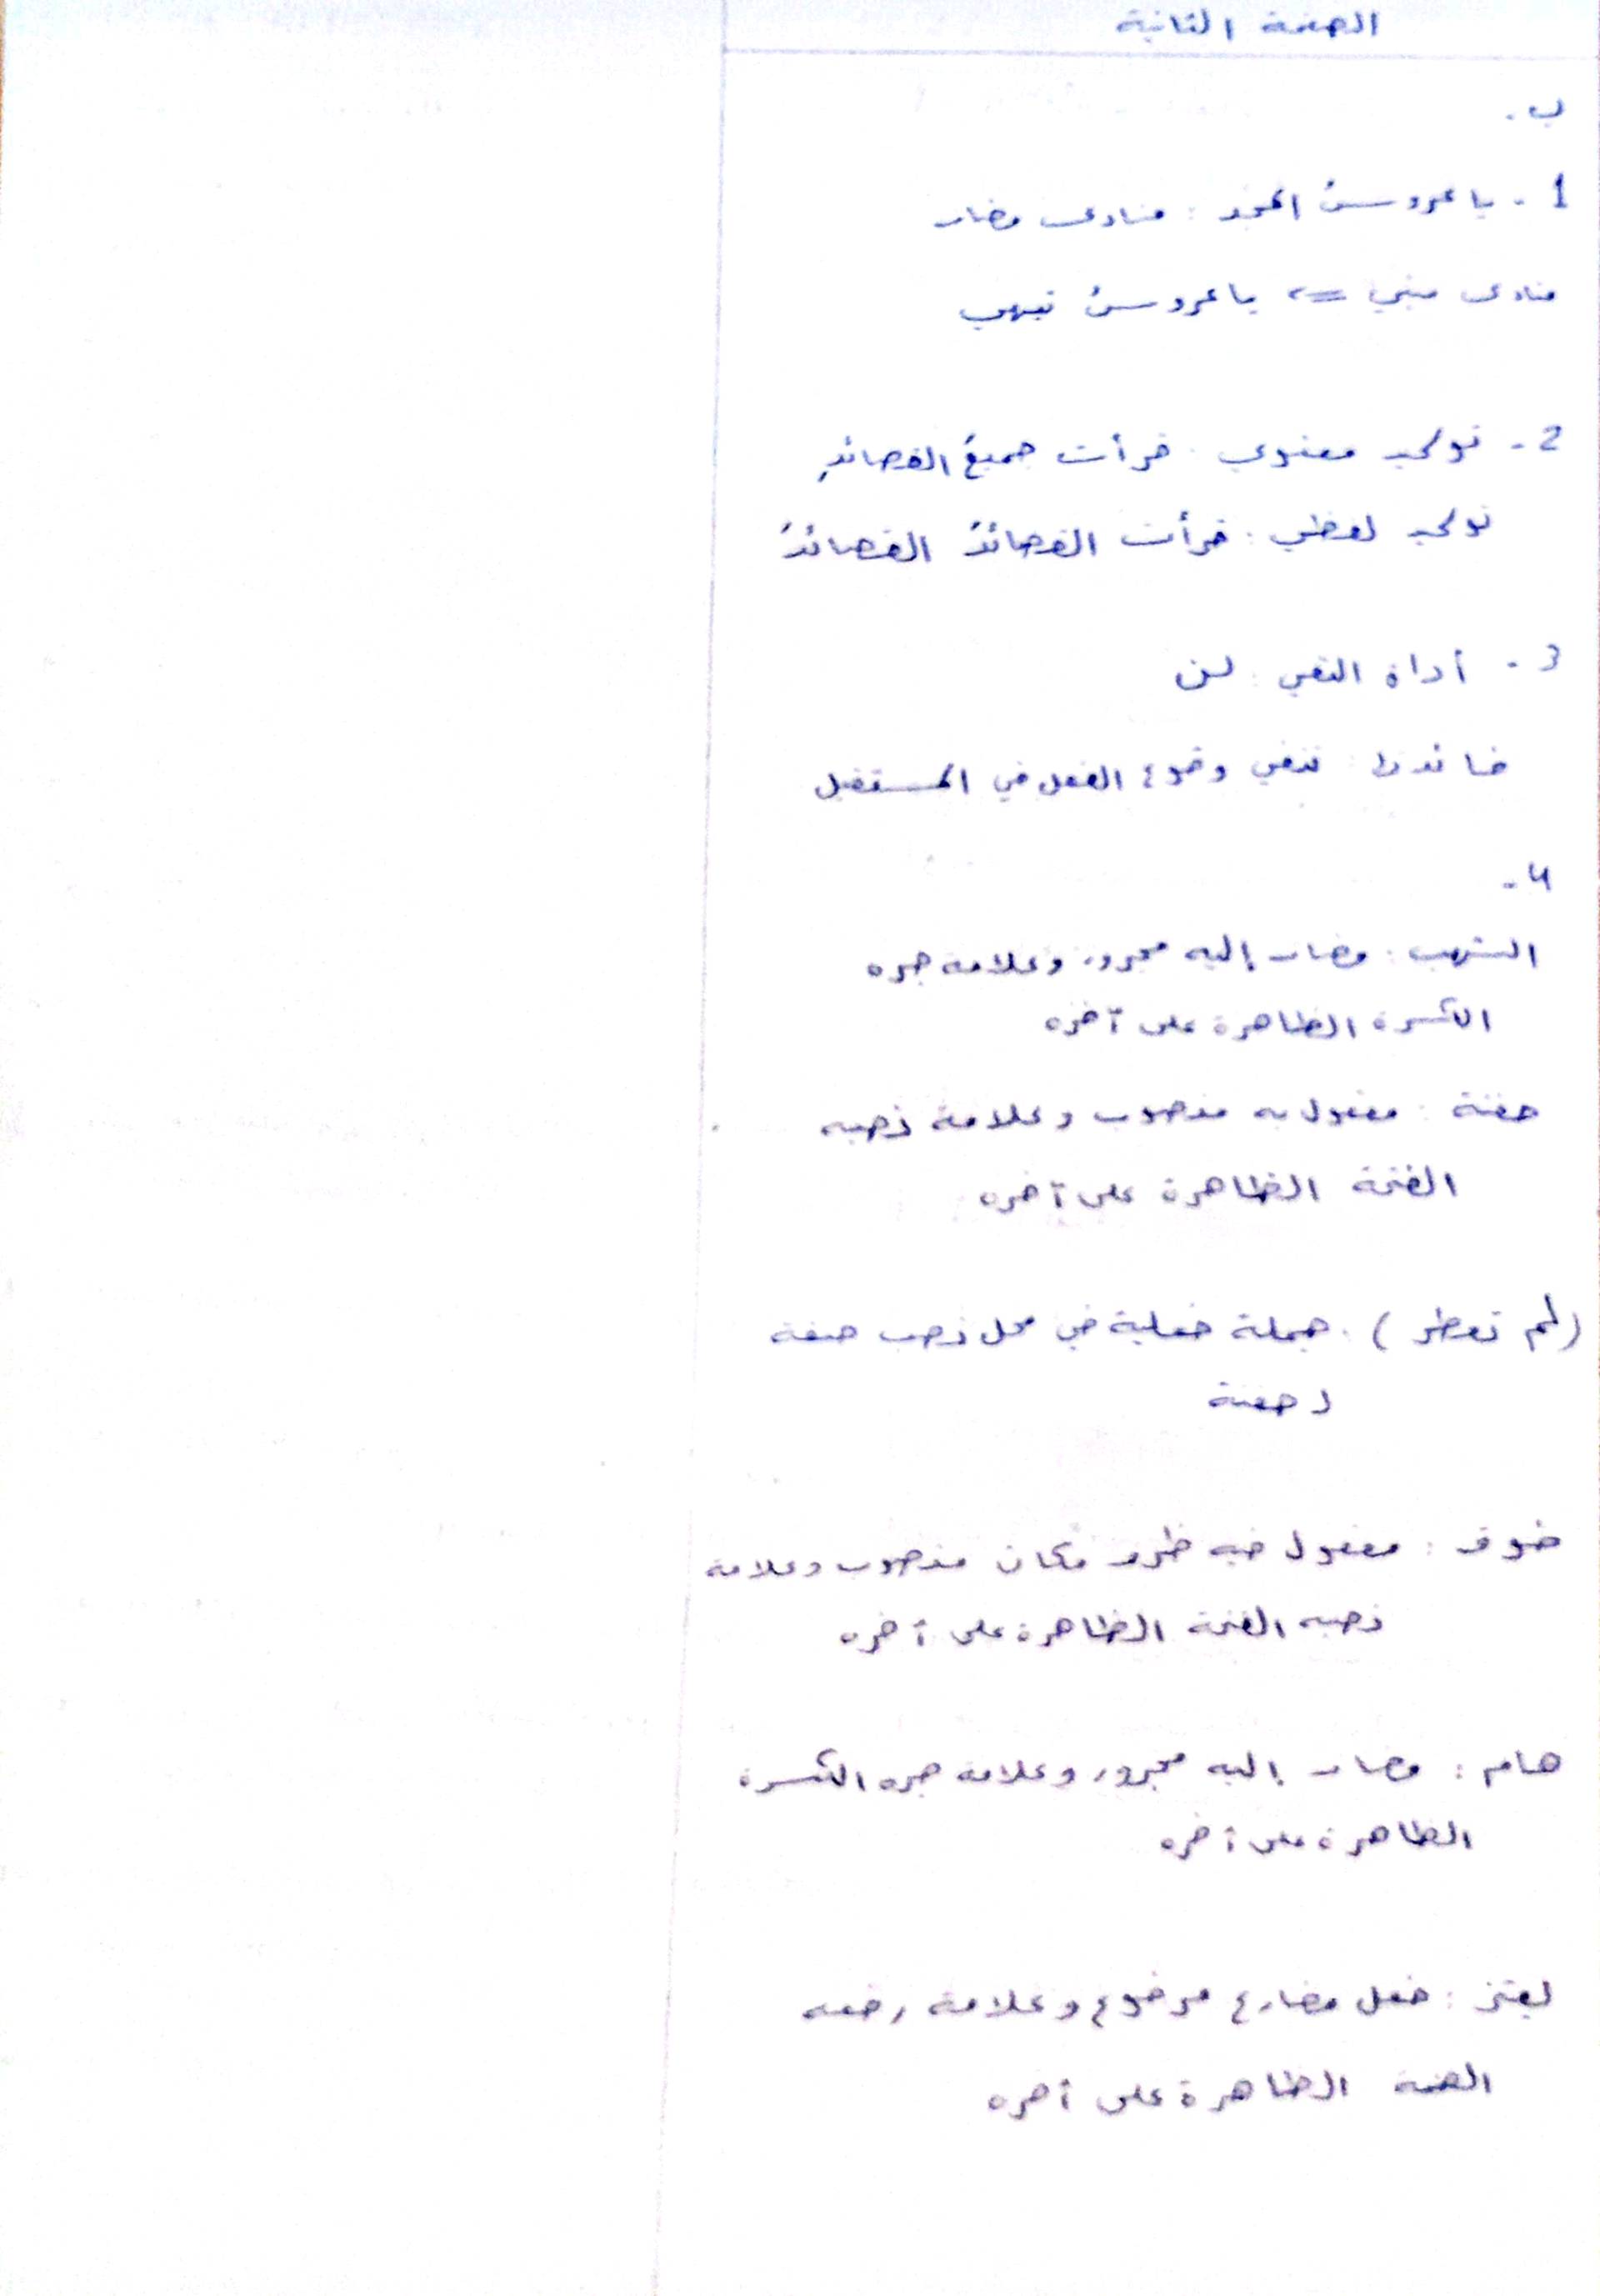 الصفحة الثانية
ب.
1 - يا عروسَ المجد : منادى مضاف
منادى مبني => يا عروسُ تيهي
2 - توكيد معنوي : قرأت جميعَ القصائدِ
توكيد لفظي : قرأت القصائدَ القصائدَ
3 - أداة النفي : لن
فائدتها : تنفي وقوع الفعل في المستقبل
4 -
الشهب : مضاف إليه مجرور وعلامة جره
الكسرة الظاهرة على آخره
حفنة : مفعول به منصوب وعلامة نصبه
الفتحة الظاهرة على آخره
(لم تعطر) : جملة فعلية في محل نصب صفة
لـ حفنة
فوق : مفعول فيه ظرف مكان منصوب وعلامة
نصبه الفتحة الظاهرة على آخره
هام : مضاف إليه مجرور وعلامة جره الكسرة
الظاهرة على آخره
يعتز : فعل مضارع مرفوع وعلامة رفعه
الضمة الظاهرة على آخره